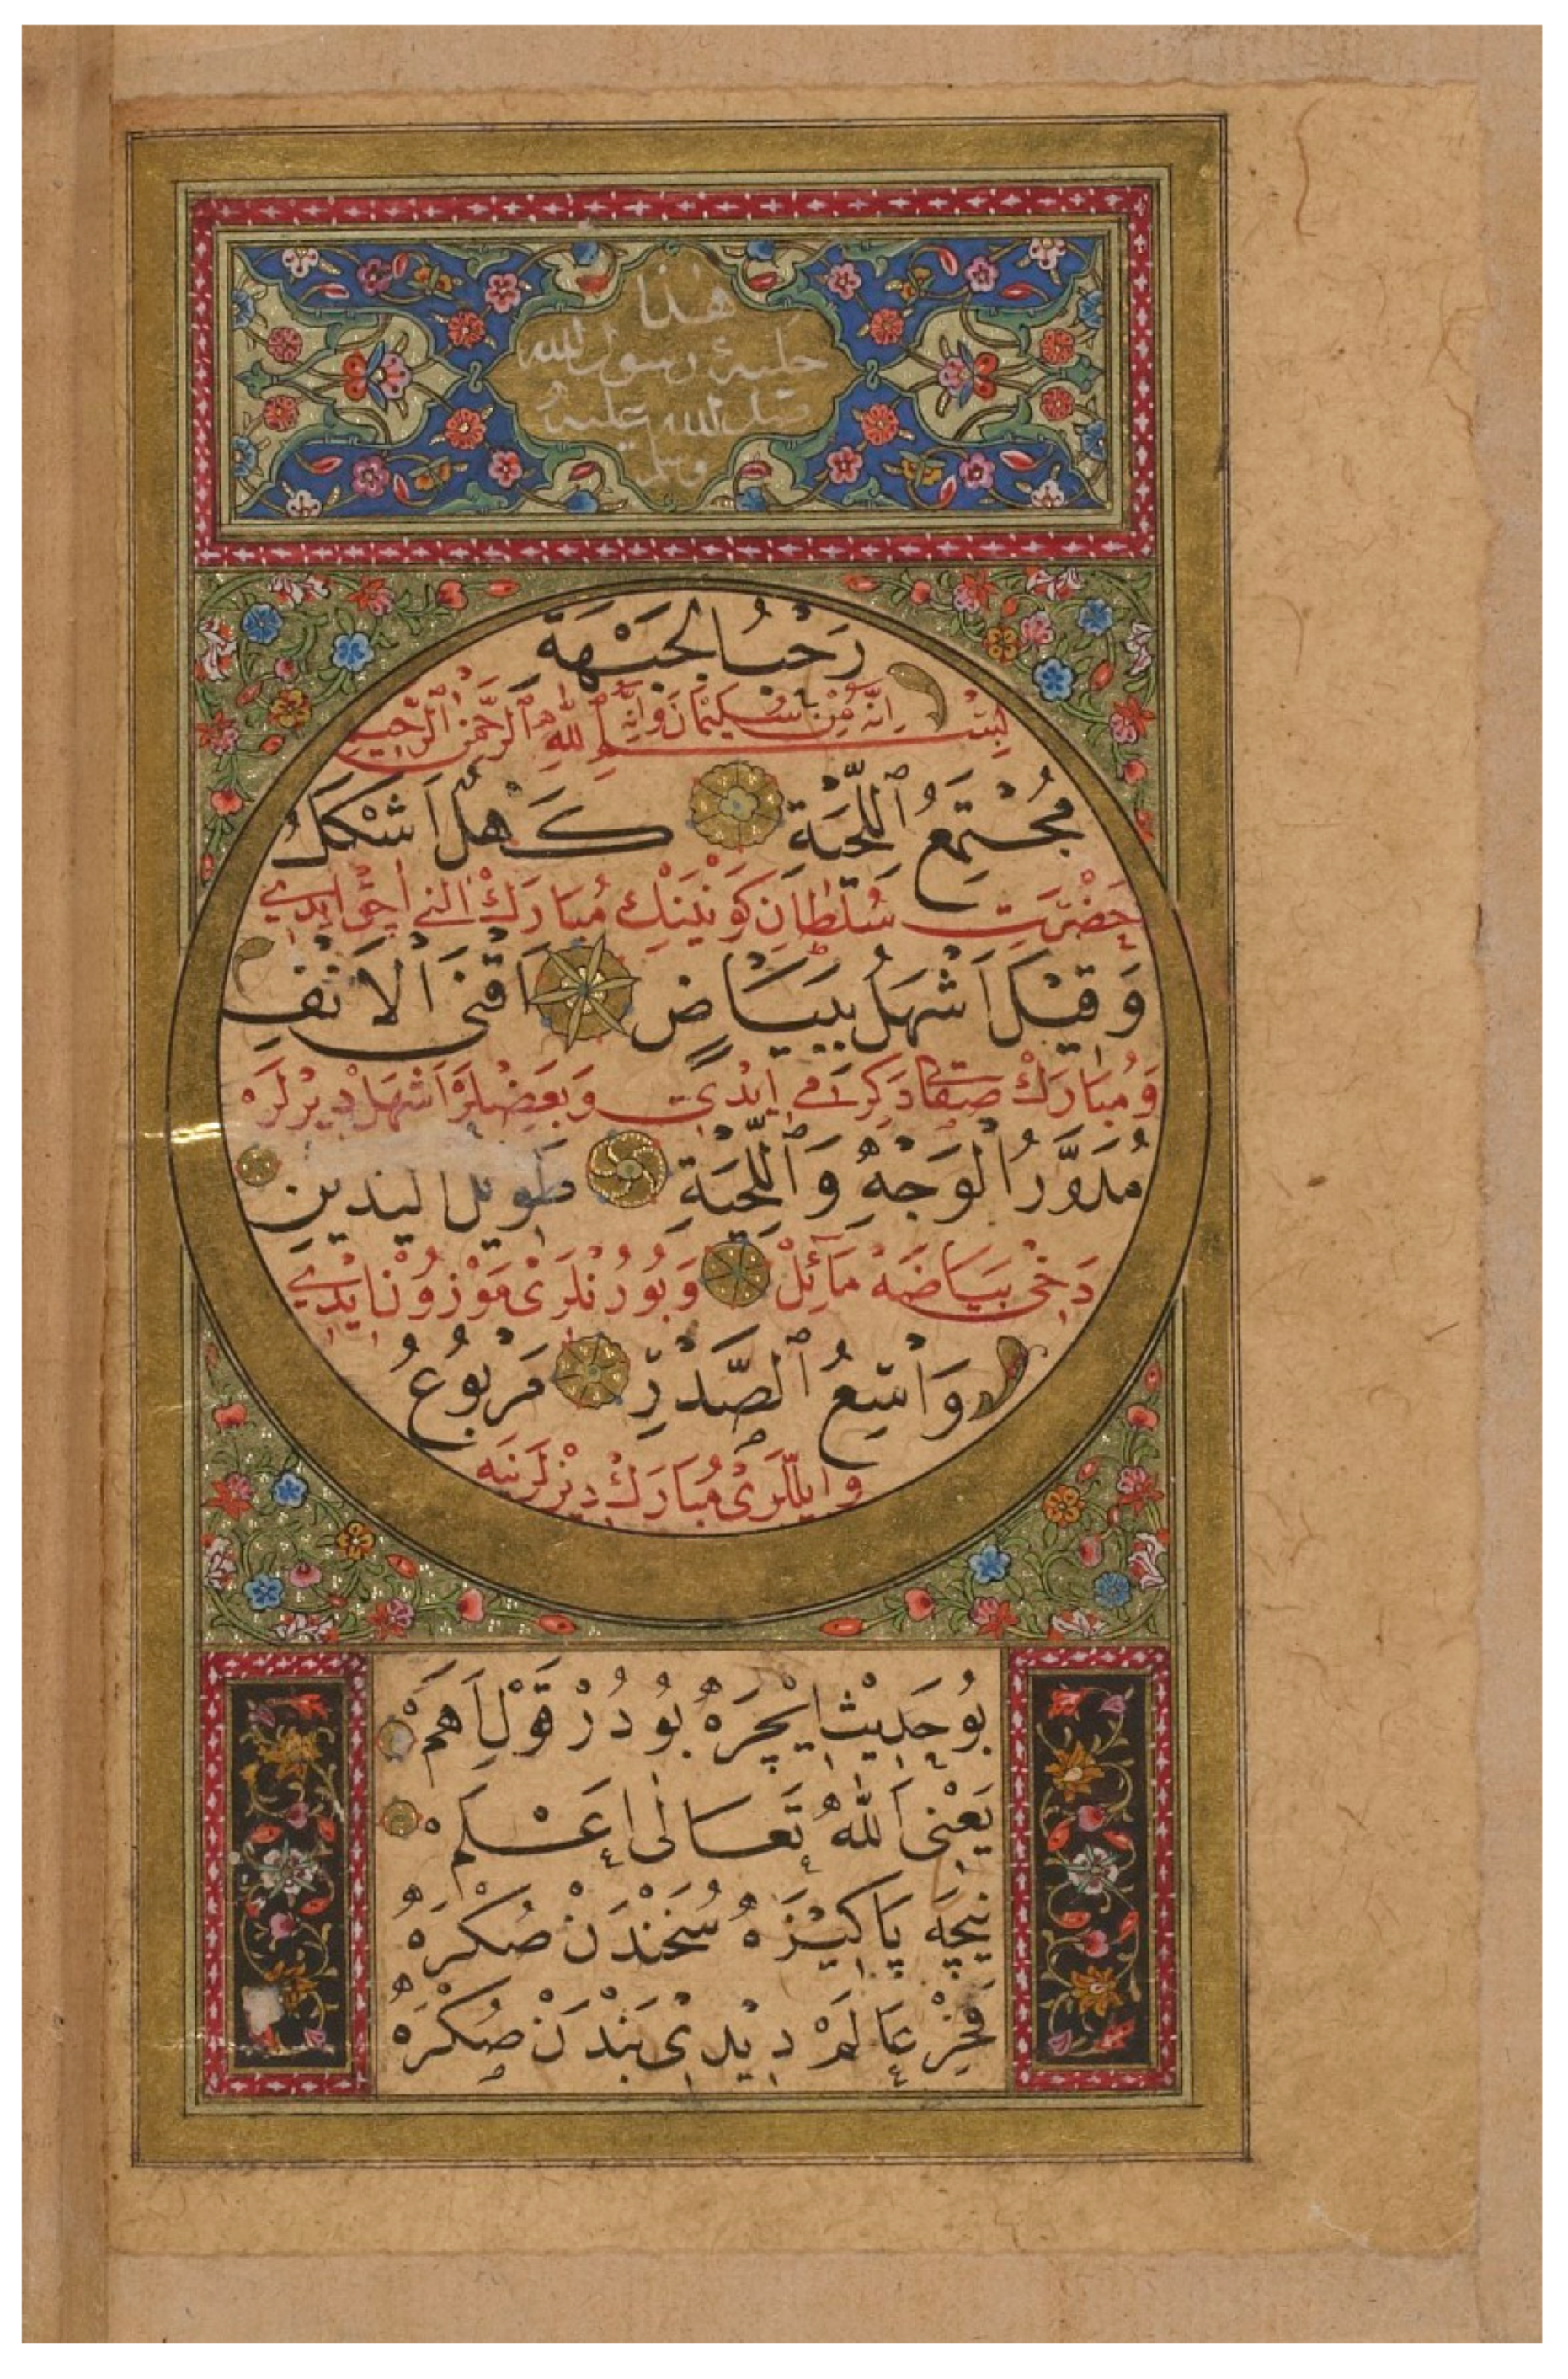 هذا
حلية رسول الله
صلى الله عليه
وسلم
رَحْبُ الْجَبْهَةِ
اِنَّهُ مِنْ سُلَيْمَانَ وَاِنَّهُ بِسْمِ اللّٰهِ الرَّحْمٰنِ الرَّحِيمِ
مُجْتَمِعُ اللِّحْيَةِ كَهْلٌ اَشْكَلُ
حَضْرَتِ سُلْطَانِ كَوْنَيْنِكْ مُبَارَكْ اَلْنِى اَچِقْ اِيدِى
وَقِيْلَ اَشْهَلُ بِبَيَاضٍ اَقْنَى الْاَنْفِ
وَمُبَارَكْ صَقَالْ دَكِرْمِى اِيْدِى وَبَعْضِلَرْ اَشْهَلْ دِيرْلَرْ
مُدَوَّرُ الْوَجْهِ وَاللِّحْيَةِ طَوِيلُ الْيَدَيْنِ
دَخِى بَيَاضَهْ مَائِلْ وَبُورُنْلَرِى مَوْزُونْ اِيْدِى
وَاسِعُ الصَّدْرِ مَرْبُوعُ
وَاَيْلَلَرِى مُبَارَكْ دِيزْلَرِنَه
بُو حَدِيْث اِيْچَرَهْ بُودُرْ قَوْلِ اَهَمْ
يَعْنِى اَللّٰهُ تَعَالٰى اَعْلَمْ
نِيچَه پَاكِيْزَهْ سُخَنْدَنْ صُكْرَهْ
فَخْرِ عَالَمْ دِيْدِى بَنْدَنْ صُكْرَهْ